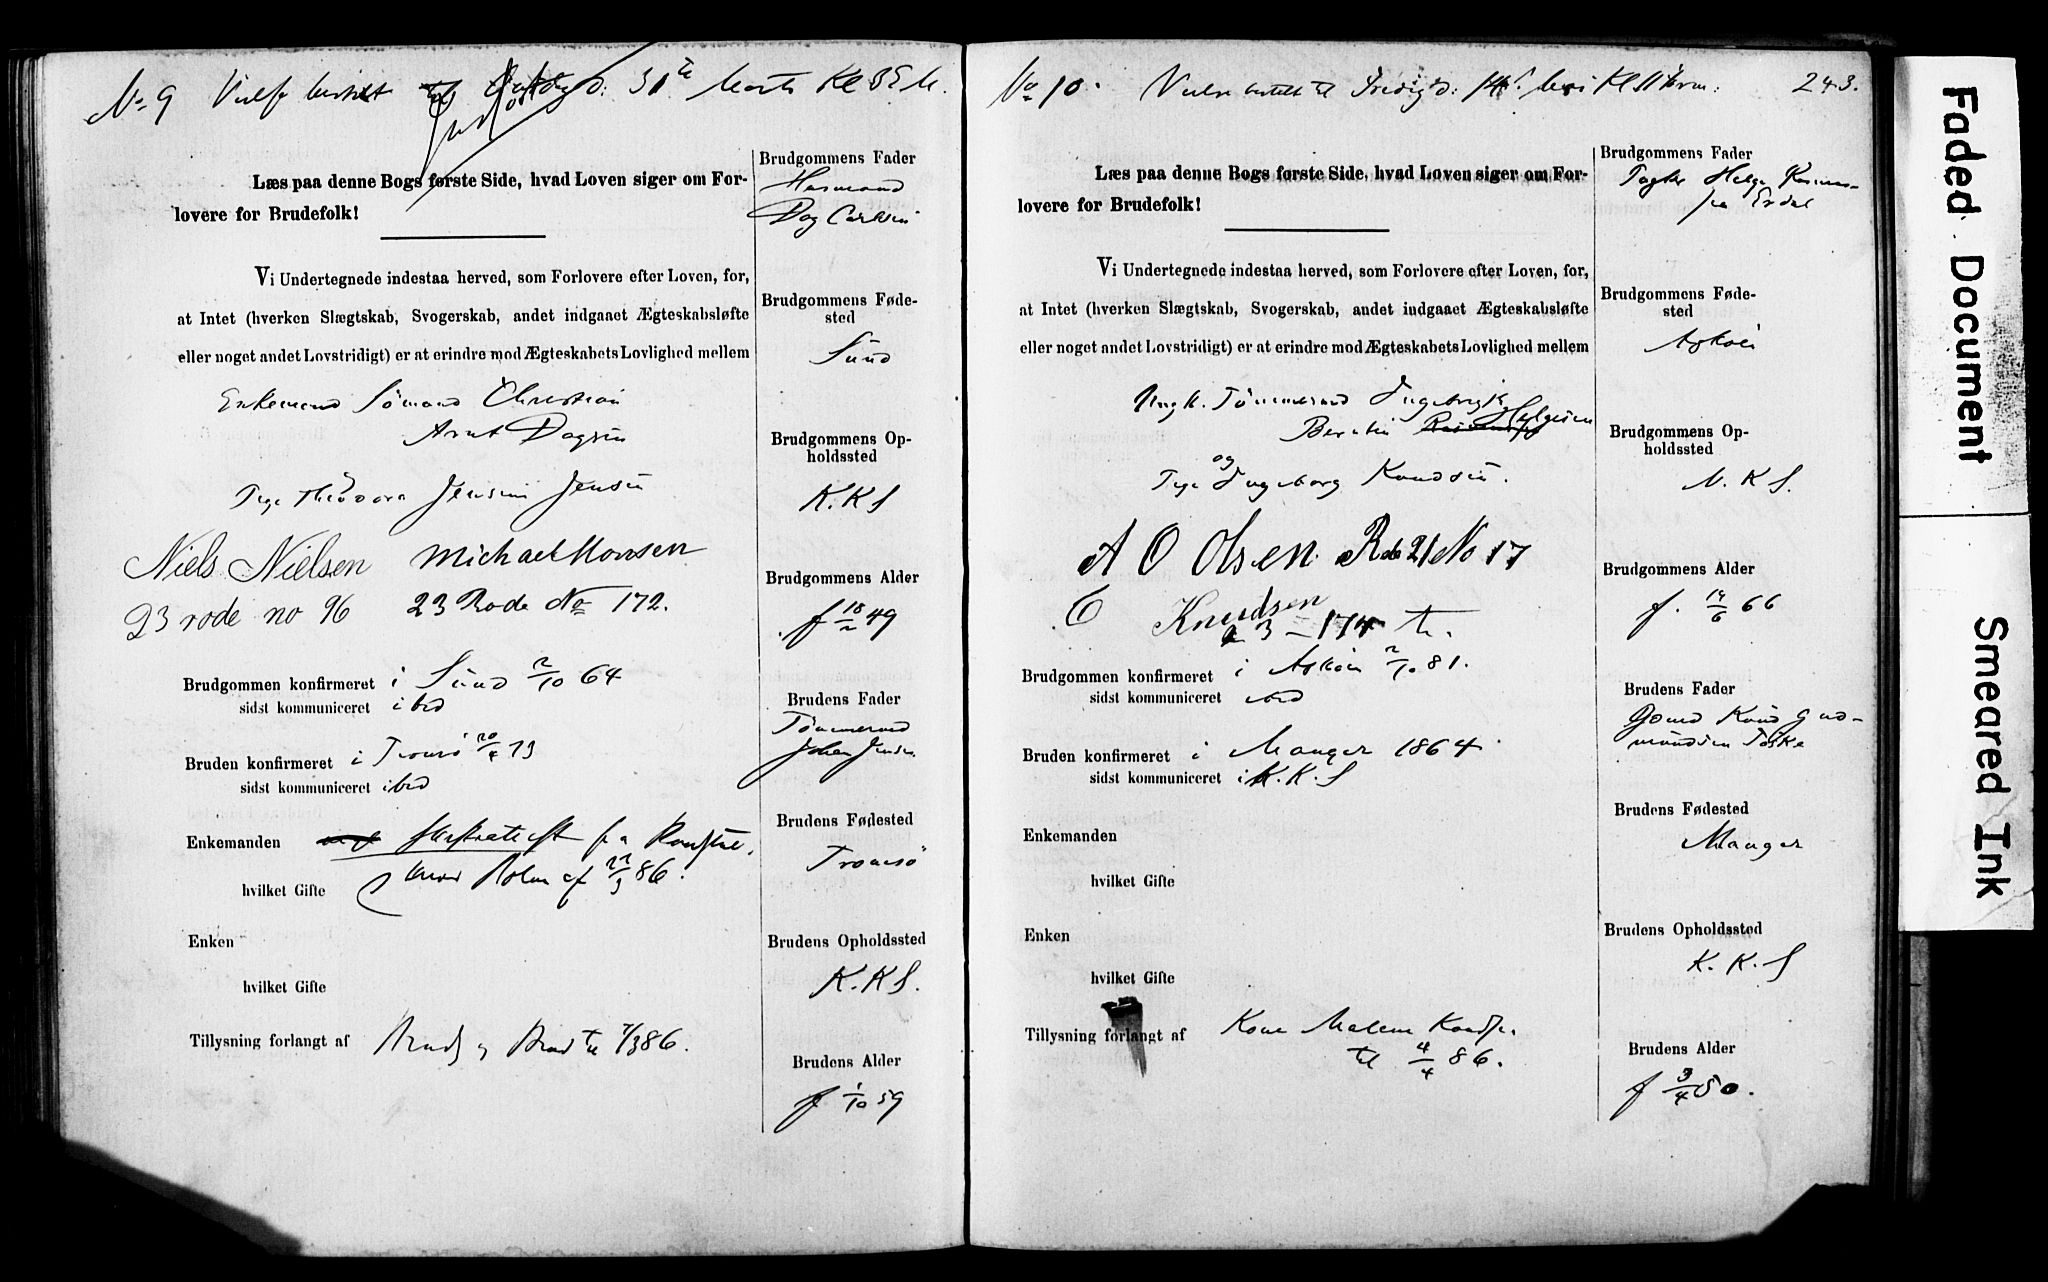 No 9 31te Marts Kl 5 E. M.
Læs paa denne Bogs første Side, hvad Loven siger om For-
lovere for Brudefolk!
Vi Undertegnede indestaa herved, som Forlovere efter Loven, for,
at Intet (hverken Slægtskab, Svogerskab, andet indgaaet Ægteskabsløfte
eller noget andet Lovstridigt) er at erindre mod Ægteskabets Lovlighed mellem
Enkemand Sömand Christian
Arnt Dagsen
og
Pige Theodora Jensine Jensen
Niels Nielsen Michael Monsen
23 rode no 96 23 Rode No 172.
Brudgommen konfirmeret i Sund 2/10 64
sidst kommuniceret ibid
Bruden konfirmeret i Tromsö 20/4 73
sidst kommuniceret ibid
Enkemanden Skifteattest fra
hvilket Gifte af 22/3 86.
Enken
hvilket Gifte
Tillysning forlangt af Brudg og Brud til 7/3 86.
Brudgommens Fader
Husmand
Dag Carlsen
Brudgommens Føde-
sted
Sund
Brudgommens Op-
holdssted
K. K S
Brudgommens Alder
f 18/2 49
Brudens Fader
Tömmermd
Johan Jensen
Brudens Fødested
Tromsö
Brudens Opholdssted
K. K S.
Brudens Alder
f 1/10 59
No 10. Vielse bestilt til Fredag d: Kl 11 Form: 243.
Læs paa denne Bogs første Side, hvad Loven siger om For-
lovere for Brudefolk!
Vi Undertegnede indestaa herved, som Forlovere efter Loven, for,
at Intet (hverken Slægtskab, Svogerskab, andet indgaaet Ægteskabsløfte
eller noget andet Lovstridigt) er at erindre mod Ægteskabets Lovlighed mellem
Ungk. Tömmermd Ingebrigt
Berntin Helgesen
og
Pige Ingeborg Knudsen.
A O Olsen. Rode 21 No 17
C Knudsen
23 – 174
Brudgommen konfirmeret i Askøen 2/10 81.
sidst kommuniceret ibid
Bruden konfirmeret i Manger 1864.
sidst kommuniceret i K. K. S
Enkemanden
hvilket Gifte
Enken
hvilket Gifte
Tillysning forlangt af Kone Malene
til 4/4 86.
Brudgommens Fader
Helge
fra Erdal
Brudgommens Føde-
sted
Askøen
Brudgommens Op-
holdssted
N. K S.
Brudgommens Alder
f. 14/6 66
Brudens Fader
Gbmd Knud Gud-
mundsen Toska
Brudens Fødested
Manger
Brudens Opholdssted
K. K. S
Brudens Alder
f 3/4 50.
Faded Document
Smeared Ink